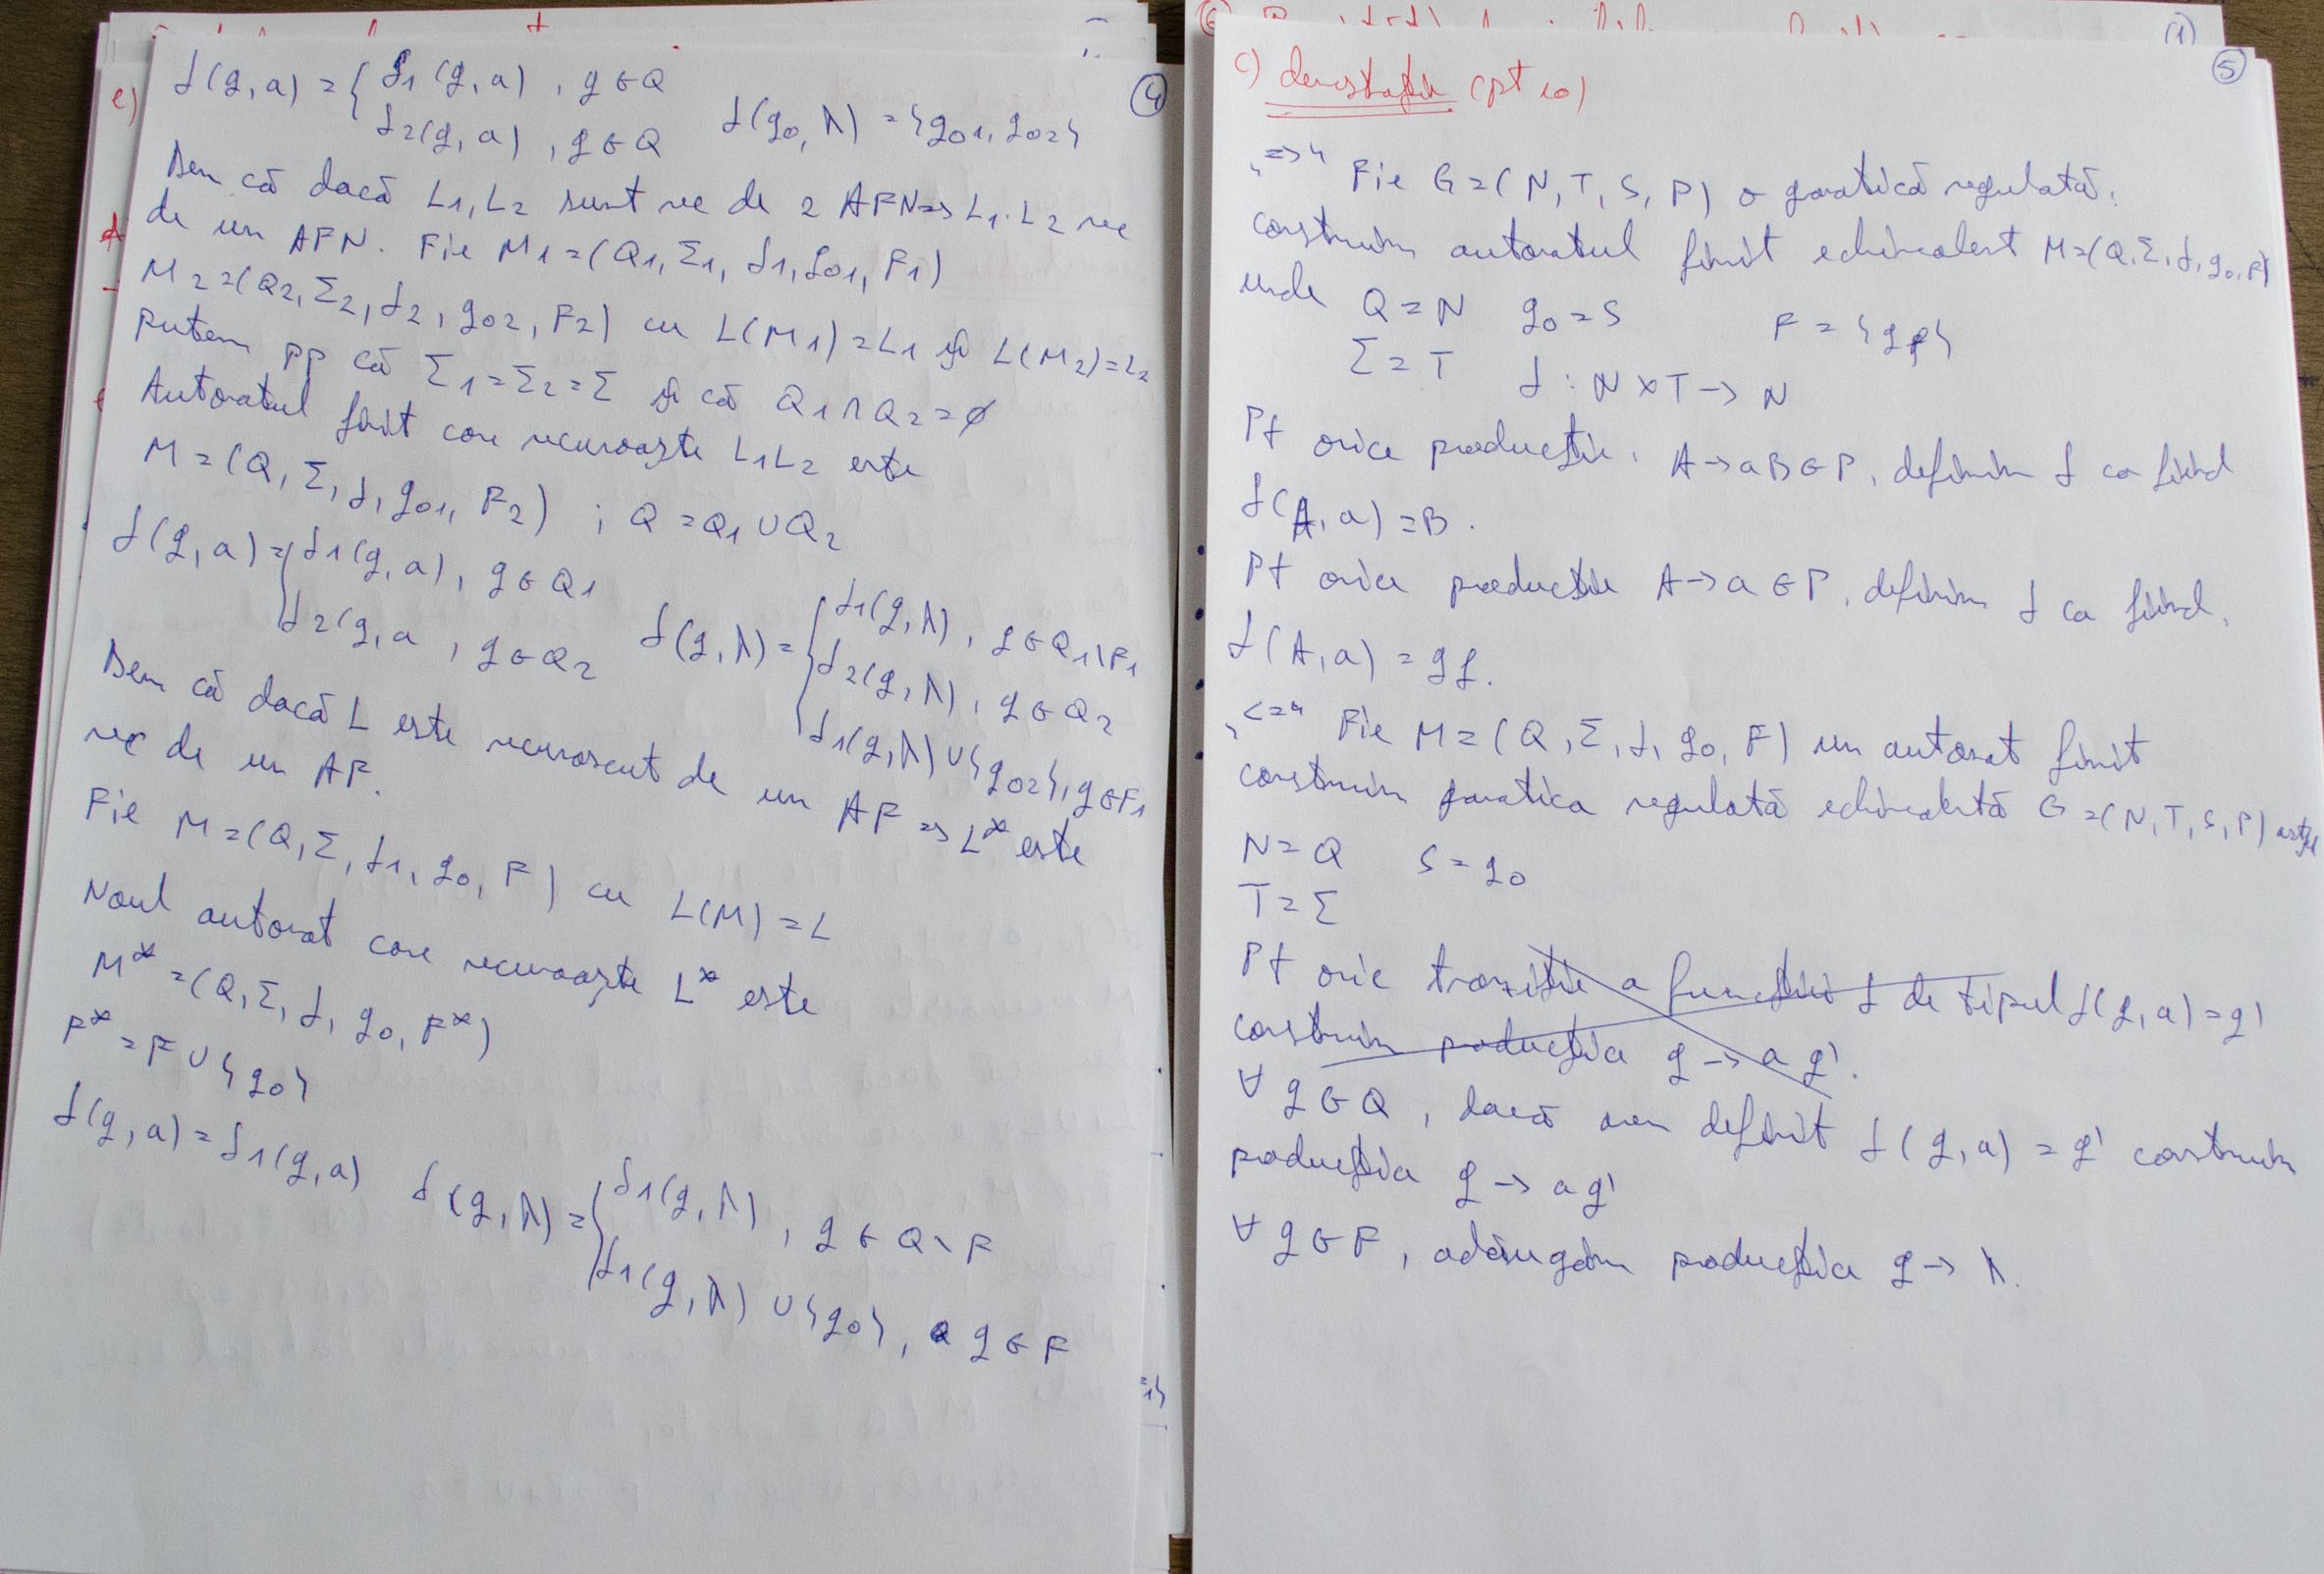 ④
f(q,a) = { f1(q,a), q∈Q
f2(q,a), q∈Q f(q0,λ) = {q01, q02}
Dem că dacă L1, L2 sunt rec de 2 AFN => L1·L2 rec
de un AFN. Fie M1=(Q1,Σ1,f1,q01,F1)
M2=(Q2,Σ2,f2,q02,F2) cu L(M1)=L1 și L(M2)=L2
Putem pp că Σ1=Σ2=Σ și că Q1∩Q2=∅
Automatul finit care recunoaște L1L2 este
M=(Q,Σ,f,q01,F2) ; Q=Q1∪Q2
f(q,a)={ f1(q,a), q∈Q1
f2(q,a , q∈Q2
f(q,λ)={ f1(q,λ), q∈Q1\F1
f2(q,λ), q∈Q2
f1(q,λ)∪{q02}, q∈F1
Dem că dacă L este recunoscut de un AF => L* este
rec de un AF.
Fie M=(Q,Σ,f1,q0,F) cu L(M)=L
Noul automat care recunoaște L* este
M*=(Q,Σ,f,q0,F*)
F*=F∪{q0}
f(q,a)=f1(q,a) f(q,λ)={ f1(q,λ), q∈Q\F
f1(q,λ)∪{q0}, q∈F
⑤
c) demonstrație (pt 10)
„=>" Fie G=(N,T,S,P) o gramatică regulată.
construim automatul finit echivalent M=(Q,Σ,f,q0,F)
unde Q=N q0=S F={qf}
Σ=T f: N×T→N
Pt orice producție A→aB∈P, definim f ca fiind
f(A,a)=B.
Pt orice producție A→a∈P, definim f ca fiind
f(A,a)=qf.
„<=" Fie M=(Q,Σ,f,q0,F) un automat finit
construim gramatica regulată echivalentă G=(N,T,S,P) astfel
N=Q S=q0
T=Σ
Pt oric tranziție a funcției f de tipul f(q,a)=q'
construim producția q→aq'.
∀q∈Q, dacă avem definit f(q,a)=q' construim
producția q→aq'
∀q∈F, adăugăm producția q→λ.